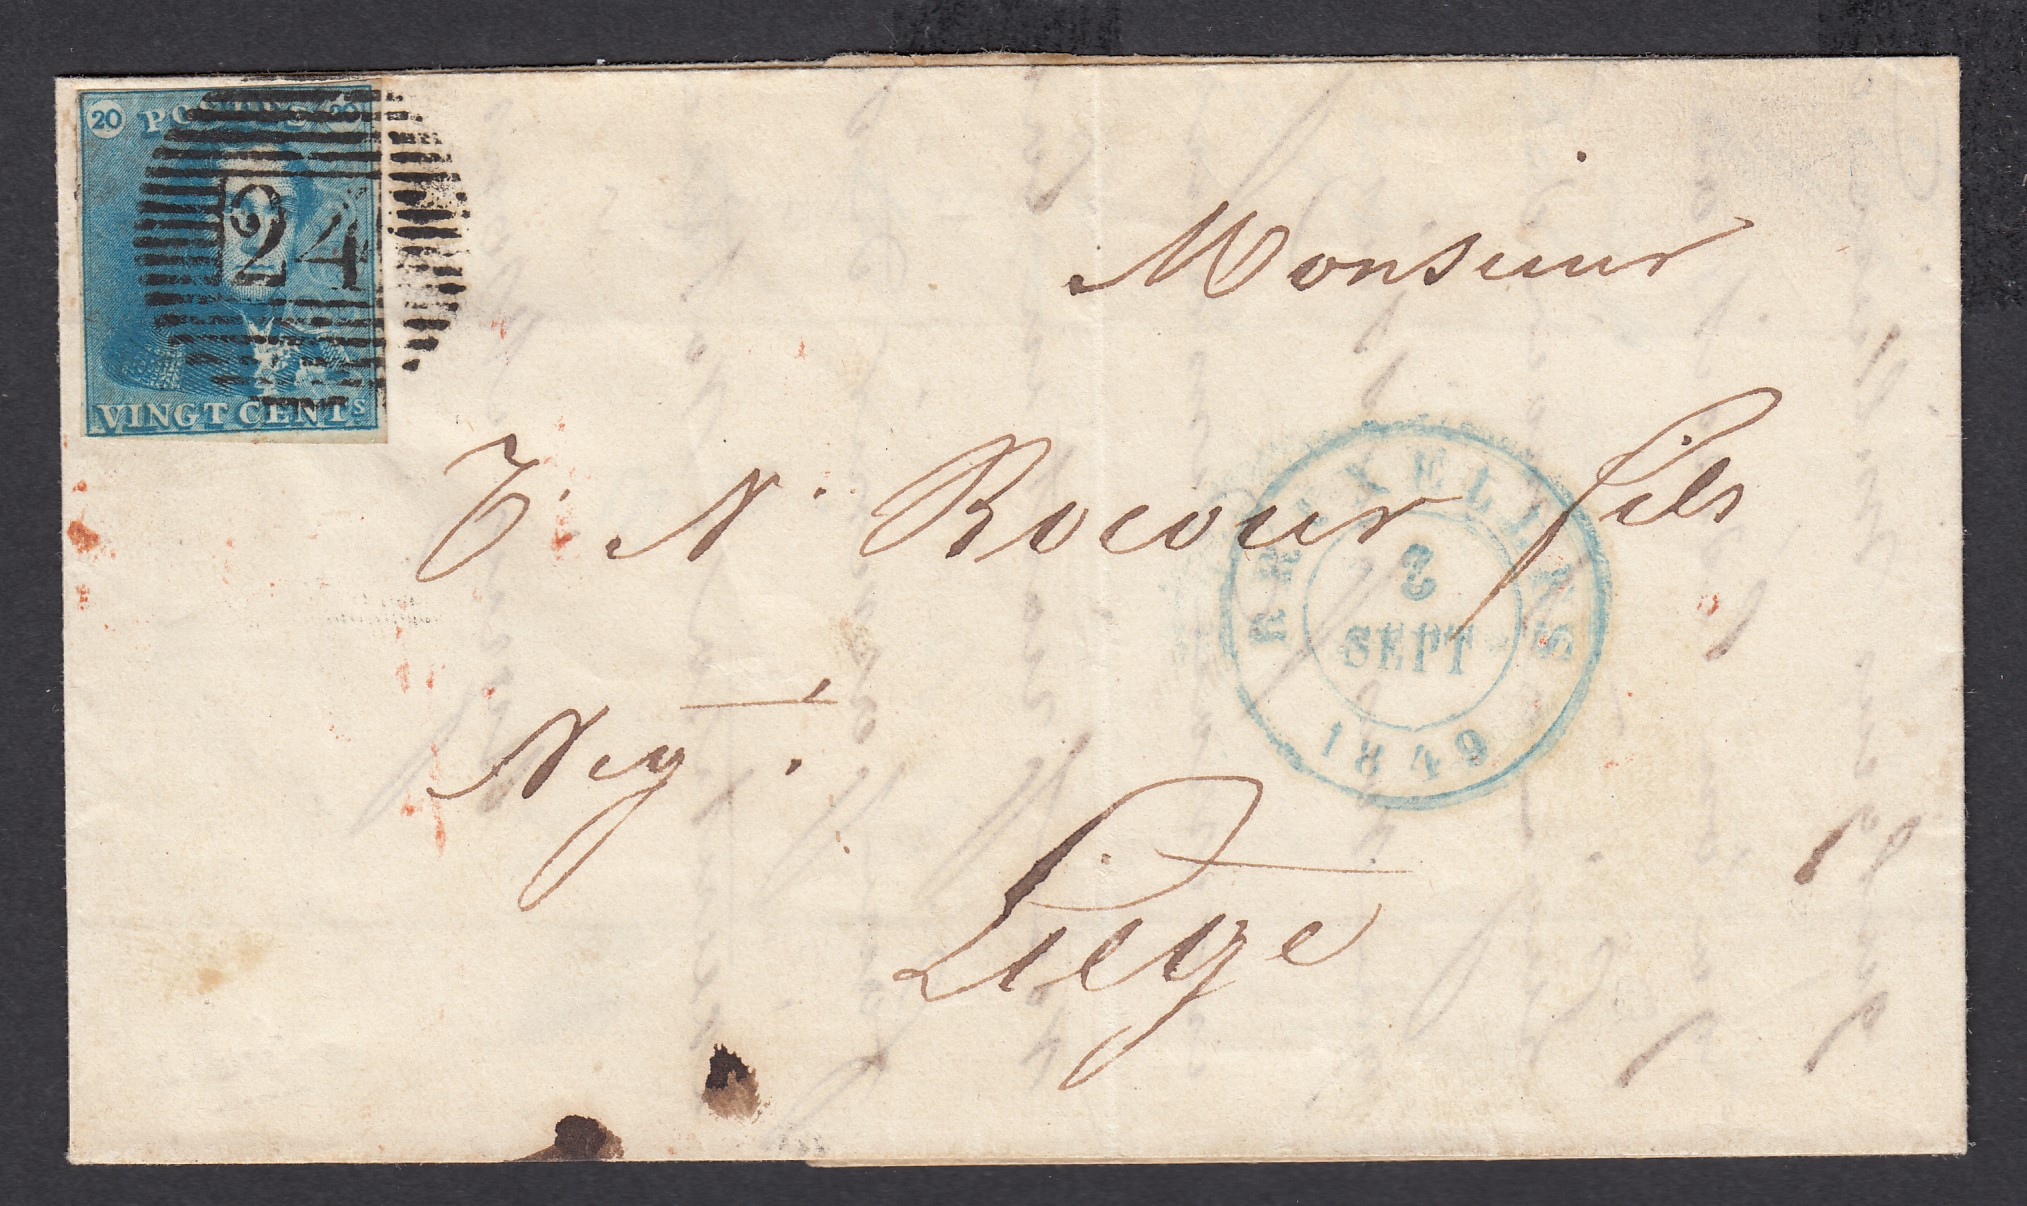 20 POSTES 20
24
VINGT CENTS
Monsieur
T. N. Rocour fils
BRUXELLES
2
SEPT
1849
Neg.t
Liége